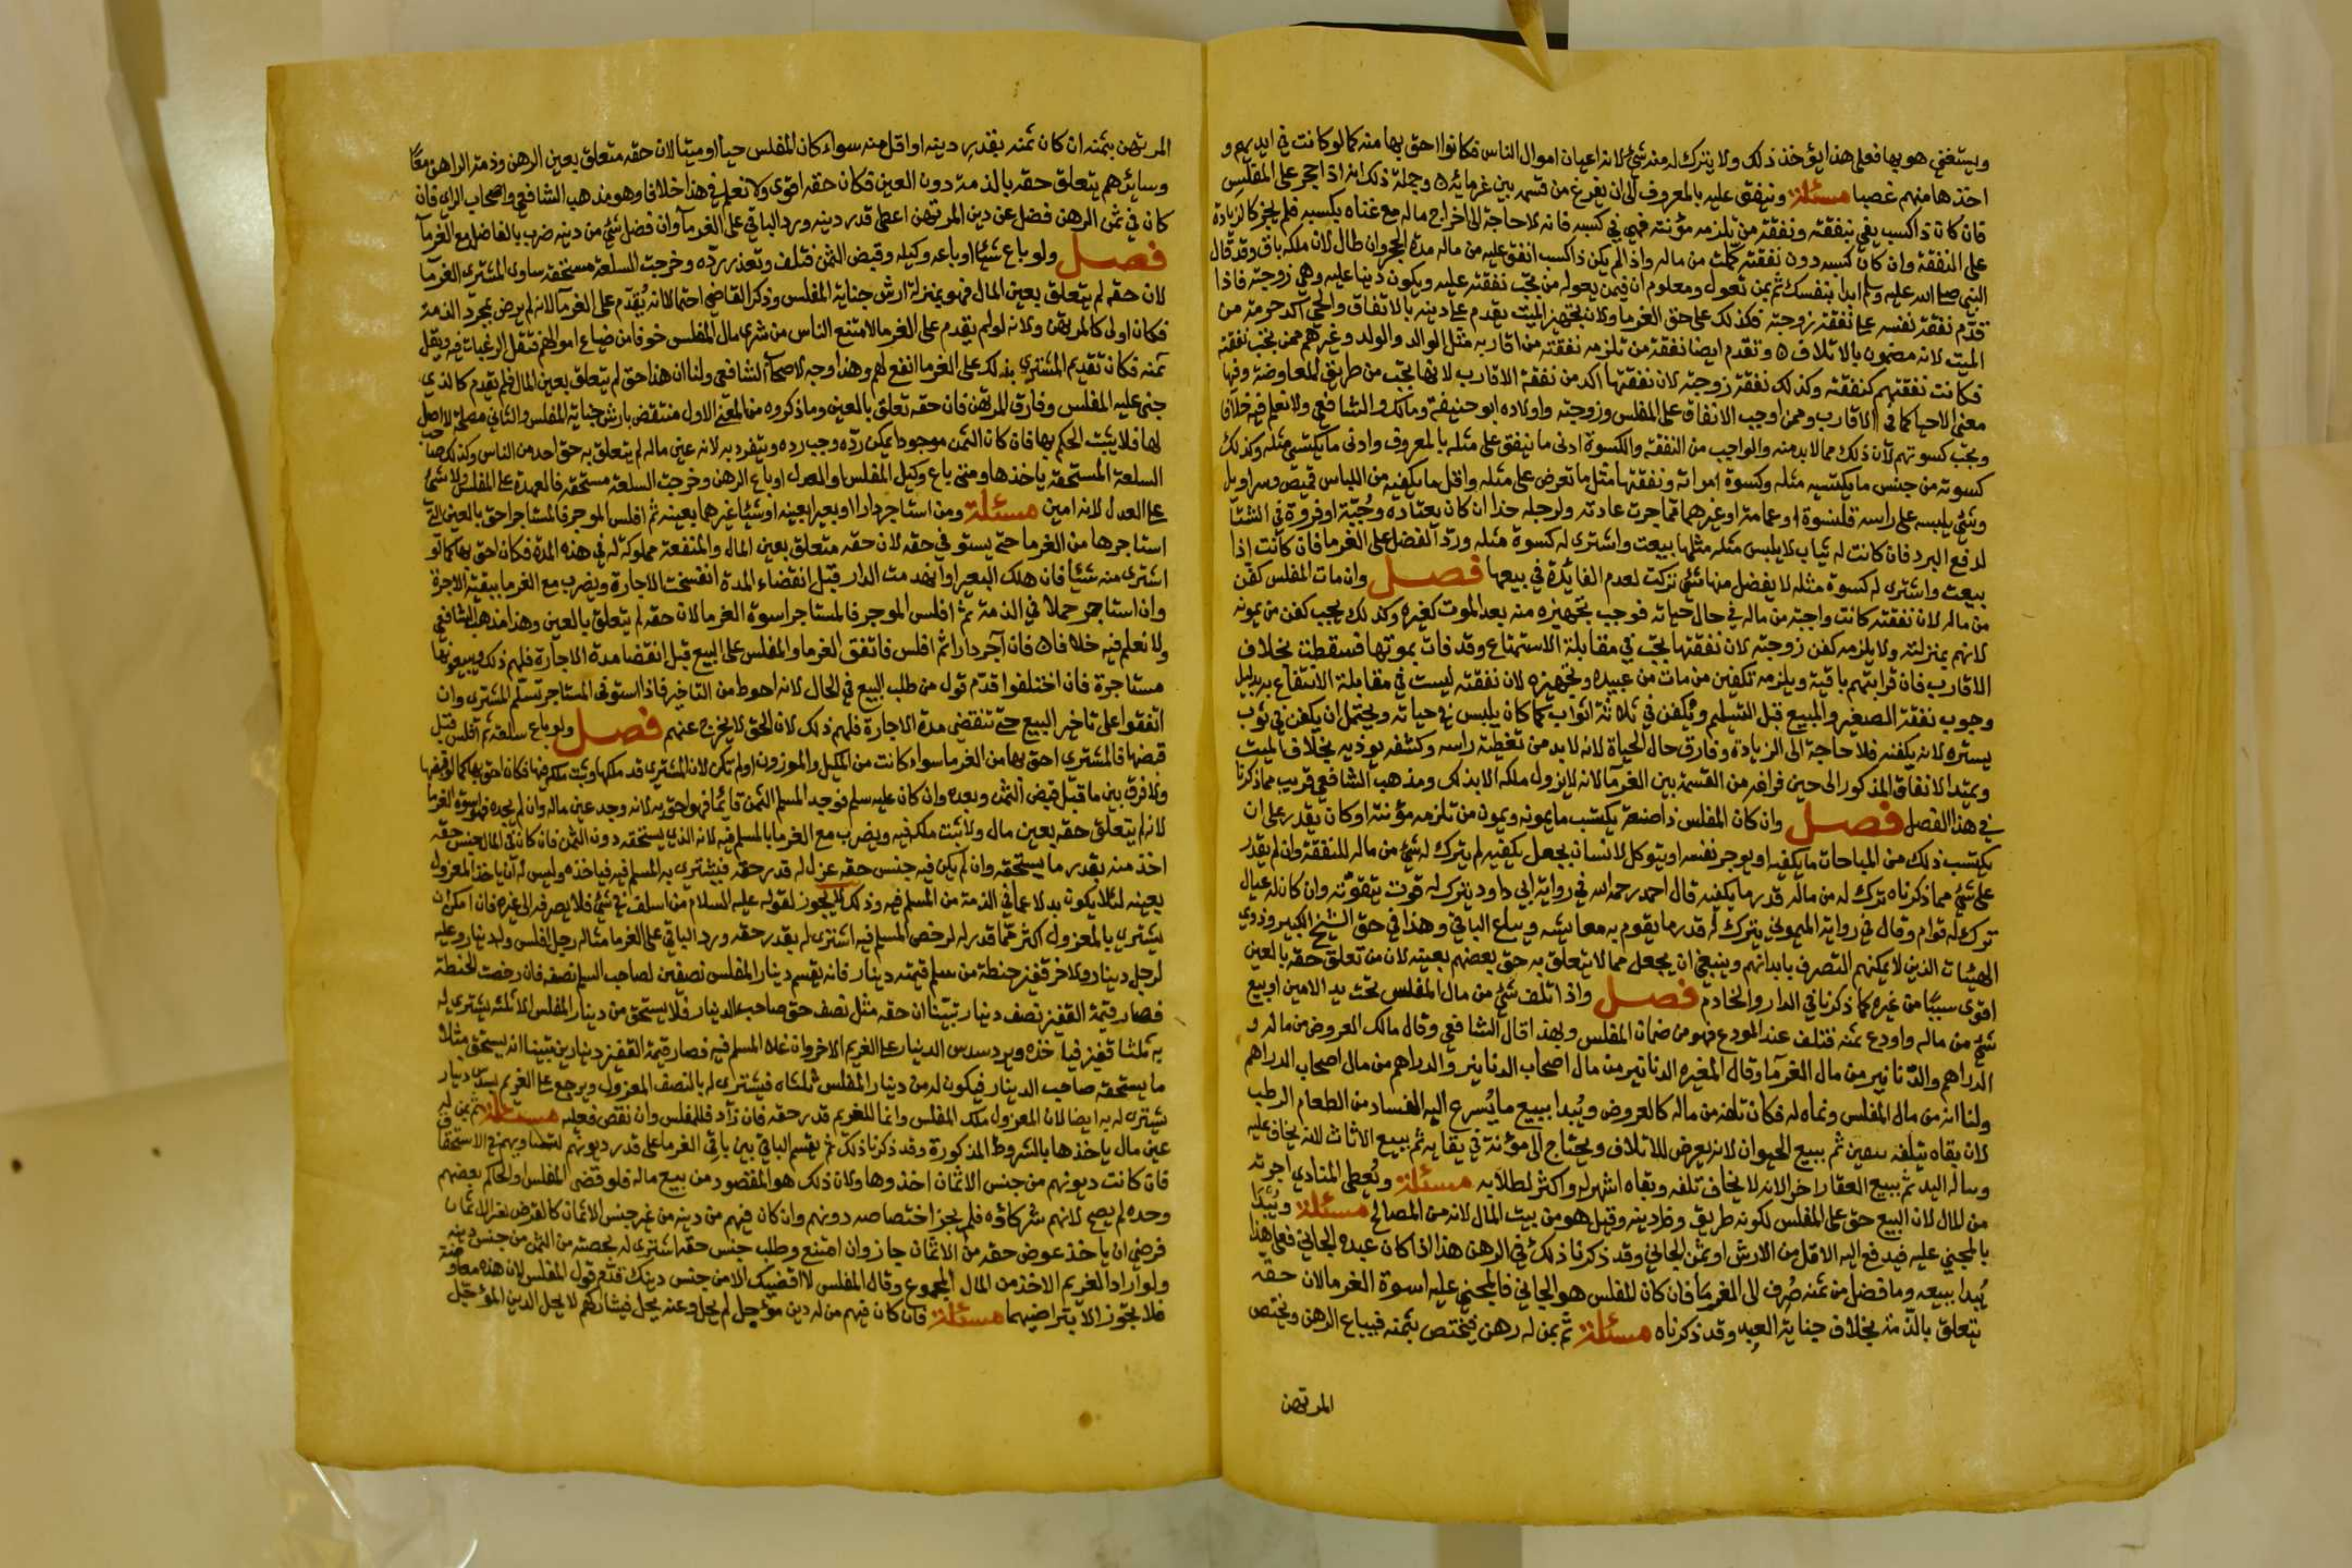 ويستغني هو بها فعلى هذا يؤخذ ذلك ولا يترك له منه شئ لانه اعيان اموال الناس فكانوا احق بها منه كما لو كانت في ايديهم و
اخذها منهم غصبا مسئلة وينفق عليه بالمعروف الى ان يفرغ من قسمه بين غرمائه وجملة ذلك انه اذا حجر على المفلس
فان كان ذا كسب يفي بنفقته ونفقة من تلزمه مؤنته فهي في كسبه فانه لا حاجة الى اخراج ماله مع غناه بكسبه فلم يجز كالزيادة
على النفقة وان كان كسبه دون نفقته كملت من ماله واذا لم يكن ذا كسب انفق عليه من ماله مدة الحجر وان طال لان ملكه باق وقد قال
النبي صلى الله عليه وسلم ابدا بنفسك ثم بمن تعول ومعلوم ان فيمن يعوله من تجب نفقته عليه ويكون دينا عليه وهي زوجته فاذا
قدم نفقة نفسه على نفقة زوجته فكذلك على حق الغرما ولان تجهيز الميت يقدم على دينه بالاتفاق والحي آكد حرمة من
الميت لانه مضمون بالاتلاف وتقدم ايضا نفقة من تلزمه نفقته من اقاربه مثل الوالد والولد وغيرهم ممن تجب نفقته
فكانت نفقتهم كنفقته وكذلك نفقة زوجته لان نفقتها آكد من نفقة الاقارب لانها تجب من طريق المعاوضة وفيها
معنى الاحيا كما في الاقارب وممن اوجب الانفاق على المفلس وزوجته واولاده ابو حنيفة ومالك والشافعي ولا نعلم فيه خلافا
وتجب كسوتهم لان ذلك مما لا بد منه والواجب من النفقة والكسوة ادنى ما ينفق على مثله بالمعروف وادنى ما يكتسي مثله وكذلك
كسوته من جنس ما يكتسبه مثله وكسوة امراته ونفقتها مثل ما تعرض على مثله واقل ما يكفيه من اللباس قميص وسراويل
وشئ يلبسه على راسه قلنسوة او عمامة او غيرهما مما جرت عادته ولرجله حذا ان كان يعتاده وجبة او فروة في الشتا
لدفع البرد فان كانت له ثياب لا يلبس مثله مثلها بيعت واشترى له كسوة مثله ورد الفضل على الغرما فان كانت اذا
بيعت واشترى له كسوة مثله لا يفضل منها شئ تركت لعدم الفائدة في بيعها فصل وان مات المفلس كفن
من ماله لان نفقته كانت واجبة من ماله في حال حياته فوجب تجهيزه منه بعد الموت كغيره وكذلك يجب كفن من يمونه
لانهم بمنزلته ولا يلزمه كفن زوجته لان نفقتها تجب في مقابلة الاستمتاع وقد فات بموتها فسقطت بخلاف
الاقارب فان قرابتهم باقية ويلزمه تكفين من مات من عبيده وتجهيزه لان نفقته ليست في مقابلة الانتفاع به بدليل
وجوب نفقة الصغير والمبيع قبل التسليم ويكفن في ثلاثة اثواب كما كان يلبس في حياته ويحتمل ان يكفن في ثوب
يستره لانه يكفنه فلا حاجة الى الزيادة وفارق حال الحياة لانه لا بد من تغطية راسه وكشفه يوذيه بخلاف الميت
ويمتد الانفاق المذكور الى حين فراغه من القسمة بين الغرمآ لانه لا يزول ملكه الا بذلك ومذهب الشافعي قريب مما ذكرنا
في هذا الفصل فصل وان كان المفلس ذا صنعة يكتسب ما يمونه ويمون من تلزمه مؤنته او كان يقدر على ان
يكتسب ذلك من المباحات ما يكفيه او يوجر نفسه او يتوكل لانسان بجعل يكفيه لم يترك له شئ من ماله للنفقة وان لم يقدر
على شئ مما ذكرناه ترك له من ماله قدر ما يكفيه قال احمد رحمه الله في رواية ابي داود يترك له قوت يتقوته وان كان له عيال
ترك له قوام وقال في رواية الميموني يترك له قدر ما يقوم به معايشه ويباع الباقي وهذا في حق الشيخ الكبير وذوي
الهيئات الذين لا يمكنهم التصرف بابدانهم وينبغي ان يجعل مما لا يتعلق به حق بعضهم بعينه لان من تعلق حقه بالعين
اقوى سببا من غيره كما ذكرنا في الدار والخادم فصل واذا تلف شئ من مال المفلس تحت يد الامين او بيع
شئ من ماله واودع ثمنه فتلف عند المودع فهو من ضمان المفلس وبهذا قال الشافعي وقال مالك العروض من ماله و
الدراهم والدنانير من مال الغرمآ وقال المغيره الدنانير من مال اصحاب الدنانير والدراهم من مال اصحاب الدراهم
ولنا انه من مال المفلس ونماه له فكان تلفه من ماله كالعروض ويبدا ببيع ما يسرع اليه الفساد من الطعام الرطب
لان بقاه يتلفه بيقين ثم ببيع الحيوان لانه يعرض للاتلاف ويحتاج الى مؤنة في بقايه ثم ببيع الاثاث لانه يخاف عليه
وتناله اليد ثم ببيع العقار اخرا لانه لا يخاف تلفه وبقاه اشهر له واكثر لطلابه مسئلة ويعطى المنادي اجرته
من المال لان البيع حق على المفلس لكونه طريق وفا دينه وقيل هو من بيت المال لانه من المصالح مسئلة ويبدا
بالمجني عليه فيدفع اليه الاقل من الارش او ثمن الجاني وقد ذكرنا ذلك في الرهن هذا اذا كان عبده الجاني فعلى هذا
يبدا ببيعه وما فضل من ثمنه صرف الى الغرما فان كان المفلس هو الجاني فالمجني عليه اسوة الغرما لان حقه
يتعلق بالذمة بخلاف جناية العبد وقد ذكرناه مسئلة ثم بمن له رهن فيختص بثمنه فيباع الرهن ويختص
المرتهن
المرتهن بثمنه ان كان ثمنه بقدر دينه او اقل منه سواء كان المفلس حيا او ميتا لان حقه متعلق بعين الرهن وذمة الراهن معا
وسائرهم يتعلق حقه بالذمة دون العين فكان حقه اقوى ولا نعلم في هذا خلافا وهو مذهب الشافعي واصحاب الراي فان
كان في ثمن الرهن فضل عن دين المرتهن اعطى قدر دينه ورد الباقي على الغرمآ وان فضل شئ من دينه ضرب بالفاضل مع الغرمآ
فصل ولو باع شيئا او باعه وكيله وقبض الثمن فتلف وتعذر رده وخرجت السلعة مستحقة ساوى المشتري الغرمآ
لان حقه لم يتعلق بعين المال فهو بمنزلة ارش جناية المفلس وذكر القاضي احتمالا انه يقدم على الغرمآ لانه لم يرض بمجرد الذمة
فكان اولى كالمرتهن ولانه لو لم يقدم على الغرما لامتنع الناس من شرى مال المفلس خوفا من ضياع اموالهم فتقل الرغبات فيه ويقل
ثمنه فكان تقديم المشتري بذلك على الغرما انفع لهم وهذا وجه لاصحاب الشافعي ولنا ان هذا حق لم يتعلق بعين المال فلم يقدم كالذي
جنى عليه المفلس وفارق المرتهن فان حقه تعلق بالعين وما ذكروه من المعنى الاول منتقض بارش جناية المفلس والثاني مصلحة لا اصل
لها فلا يثبت الحكم بها فان كان الثمن موجودا يمكن رده وجب رده وينفرد به لانه عين ماله لم يتعلق به حق احد من الناس وكذلك صاحب
السلعة المستحقة ياخذها ومتى باع وكيل المفلس او العدل او باع الرهن وخرجت السلعة مستحقة فالعهدة على المفلس ولا شئ
على العدل لانه امين مسئلة ومن استاجر دارا او بعيرا بعينه او شيئا غيرهما بعينه ثم افلس الموجر فالمستاجر احق بالعين التي
استاجرها من الغرما حتى يستوفي حقه لان حقه متعلق بعين المال والمنفعة مملوكة له في هذه المدة فكان احق بها كما لو
اشترى منه شيئا فان هلك البعير او انهدمت الدار قبل انقضاء المدة انفسخت الاجارة ويضرب مع الغرما ببقية الاجرة
وان استاجر حملا في الذمة ثم افلس الموجر فالمستاجر اسوة الغرما لان حقه لم يتعلق بالعين وهذا مذهب الشافعي
ولا نعلم فيه خلافا فان آجر دارا ثم افلس فاتفق الغرما والمفلس على البيع قبل انقضا مدة الاجارة فلهم ذلك ويبيعونها
مستاجرة فان اختلفوا قدم قول من طلب البيع في الحال لانه احوط من التاخير فاذا استوفى المستاجر تسلم المشتري وان
اتفقوا على تاخير البيع حتى تنقضي مدة الاجارة فلهم ذلك لان الحق لا يخرج عنهم فصل ولو باع سلعة ثم افلس قبل
قبضها فالمشتري احق بها من الغرما سواء كانت من المكيل والموزون او لم تكن لان المشتري قد ملكها وثبت ملكه فيها فكان احق بها كما لو قبضها
ولا فرق بين ما قبل قبض الثمن وبعده وان كان عليه سلم فوجد المسلم الثمن قائما فهو احق به لانه وجد عين ماله وان لم يجده فهو اسوة الغرما
لانه لم يتعلق حقه بعين مال ولا ثبت ملكه فيه ويضرب مع الغرما بالمسلم فيه لانه الذي يستحقه دون الثمن فان كان في المال جنس حقه
اخذ منه بقدر ما يستحقه وان لم يكن فيه جنس حقه عزل له قدر حقه فيشترى به المسلم فيه فياخذه وليس له ان ياخذ المعزول
بعينه لئلا يكون بدلا عما في الذمة من المسلم فيه وذلك لا يجوز لقوله عليه السلام من اسلف في شئ فلا يصرفه الى غيره فان امكن ان
يشتري بالمعزول اكثر مما قدر له لرخص المسلم فيه اشترى له بقدر حقه ورد الباقي على الغرما مثاله رجل افلس وله دينار وعليه
لرجل دينار ولاخر قفيز حنطة من سلم قيمته دينار فانه يقسم دينار المفلس نصفين لصاحب السلم نصفه فان رخصت الحنطة
فصار قيمة القفيز نصف دينار تبينا ان حقه مثل نصف حق صاحب الدينار فلا يستحق من دينار المفلس الا ثلثه يشترى له
به ثلثا قفيز فيأخذه ويرد سدس الدينار على الغريم الاخر وان غلا المسلم فيه فصار قيمة القفيز دينارين تبينا انه يستحق مثلا
ما يستحقه صاحب الدينار فيكون له من دينار المفلس ثلثاه فيشترى له بالنصف المعزول ويرجع على الغريم بسدس دينار
يشترى له به ايضا لان المعزول ملك المفلس وانما للغريم قدر حقه فان زاد فللمفلس وان نقص فعليه مسئلة ثم بمن له
عين مال ياخذها بالشروط المذكورة وقد ذكرنا ذلك ثم يقسم الباقي بين باقي الغرما على قدر ديونهم لتساويهم في الاستحقاق
فان كانت ديونهم من جنس الاثمان اخذوها ولان ذلك هو المقصود من بيع ماله فلو قضى المفلس او الحاكم بعضهم
وحده لم يصح لانهم شركاؤه فلم يجز اختصاصه دونهم وان كان فيهم من دينه من غير جنس الاثمان كالقرض بغير الاثمان
فرضي ان ياخذ عوض حقه من الاثمان جاز وان امتنع وطلب جنس حقه اشترى له بحصته من الثمن من جنس دينه
ولو اراد الغريم الاخذ من المال المجموع وقال المفلس لا اقضيك الا من جنس دينك قدم قول المفلس لان هذه معاوضة
فلا يجوز الا بتراضيهما مسئلة فان كان فيهم من له دين مؤجل لم يحل وعنه يحل فيشاركهم لا يحل الدين المؤجل